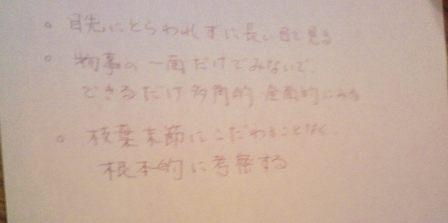 。目先にとらわれずに長い目で見る
。物事の一面だけでみないで、
できるだけ多角的全面的にみる
。枝葉末節にこだわることなく、
根本的に考察する